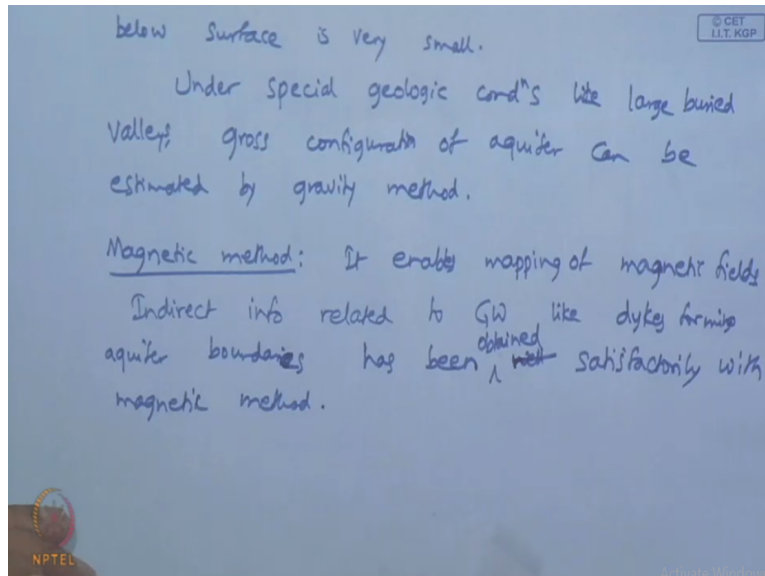 © CET
I.I.T. KGP
below surface is very small.
Under special geologic condⁿs like large buried
valleys, gross configuratn of aquifer can be
estimated by gravity method.
Magnetic method: It enables mapping of magnetic fields
Indirect info related to GW like dykes forming
obtained
aquifer boundaries has been ^ satisfactorily with
magnetic method.
NPTEL
Activate Windows